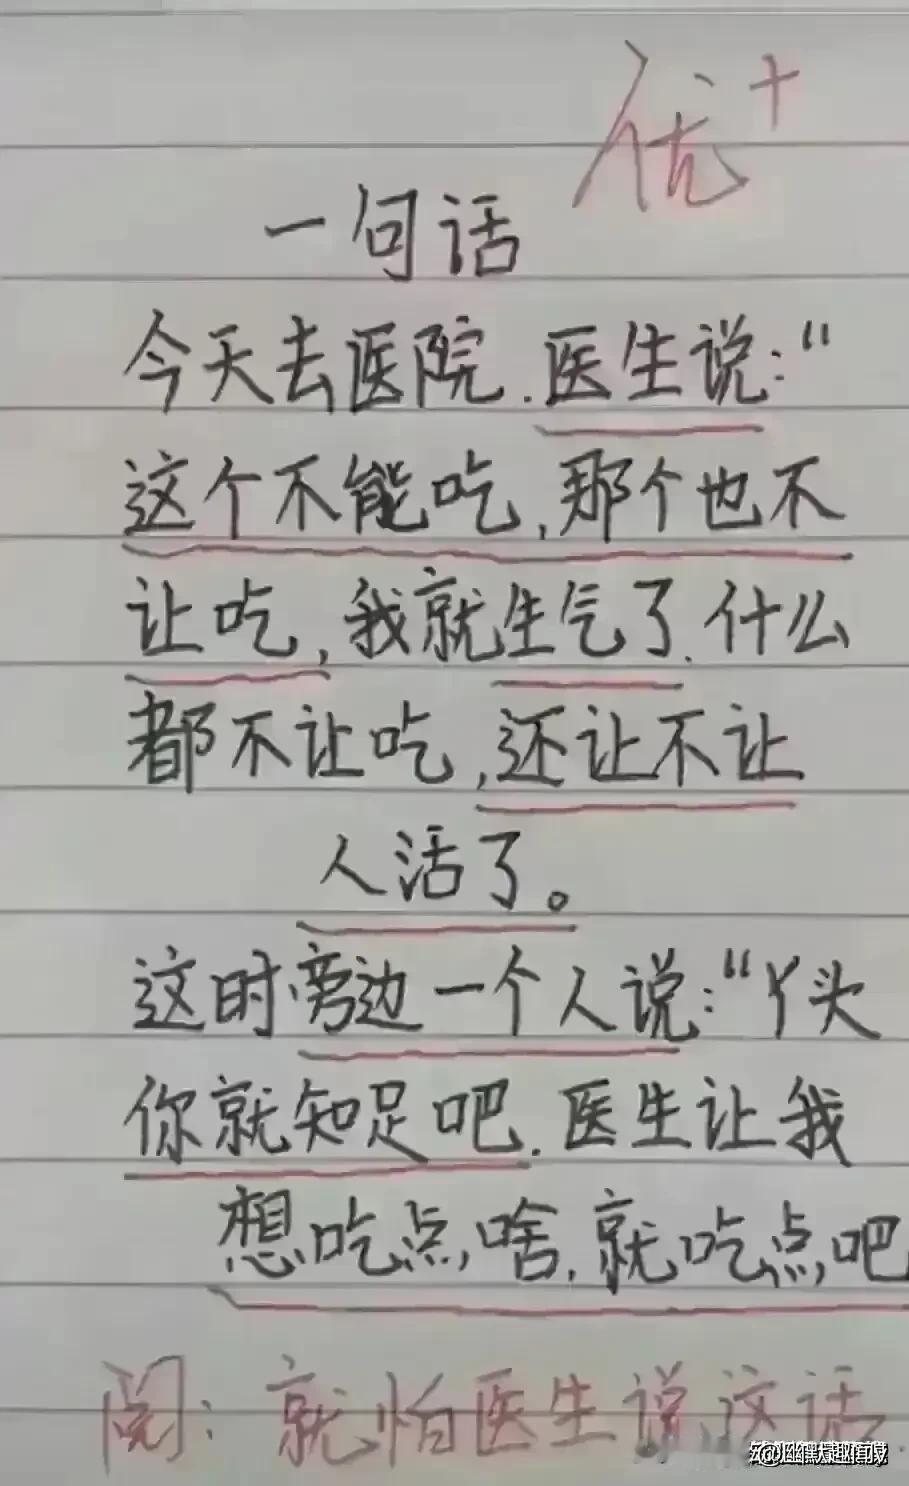 优+
一句话
今天去医院.医生说:“
这个不能吃,那个也不
让吃,我就生气了.什么
都不让吃,还让不让
人活了。
这时旁边一个人说:“丫头
你就知足吧.医生让我
想吃点啥,就吃点吧
阅:就怕医生说这话.
@幽默趣闻